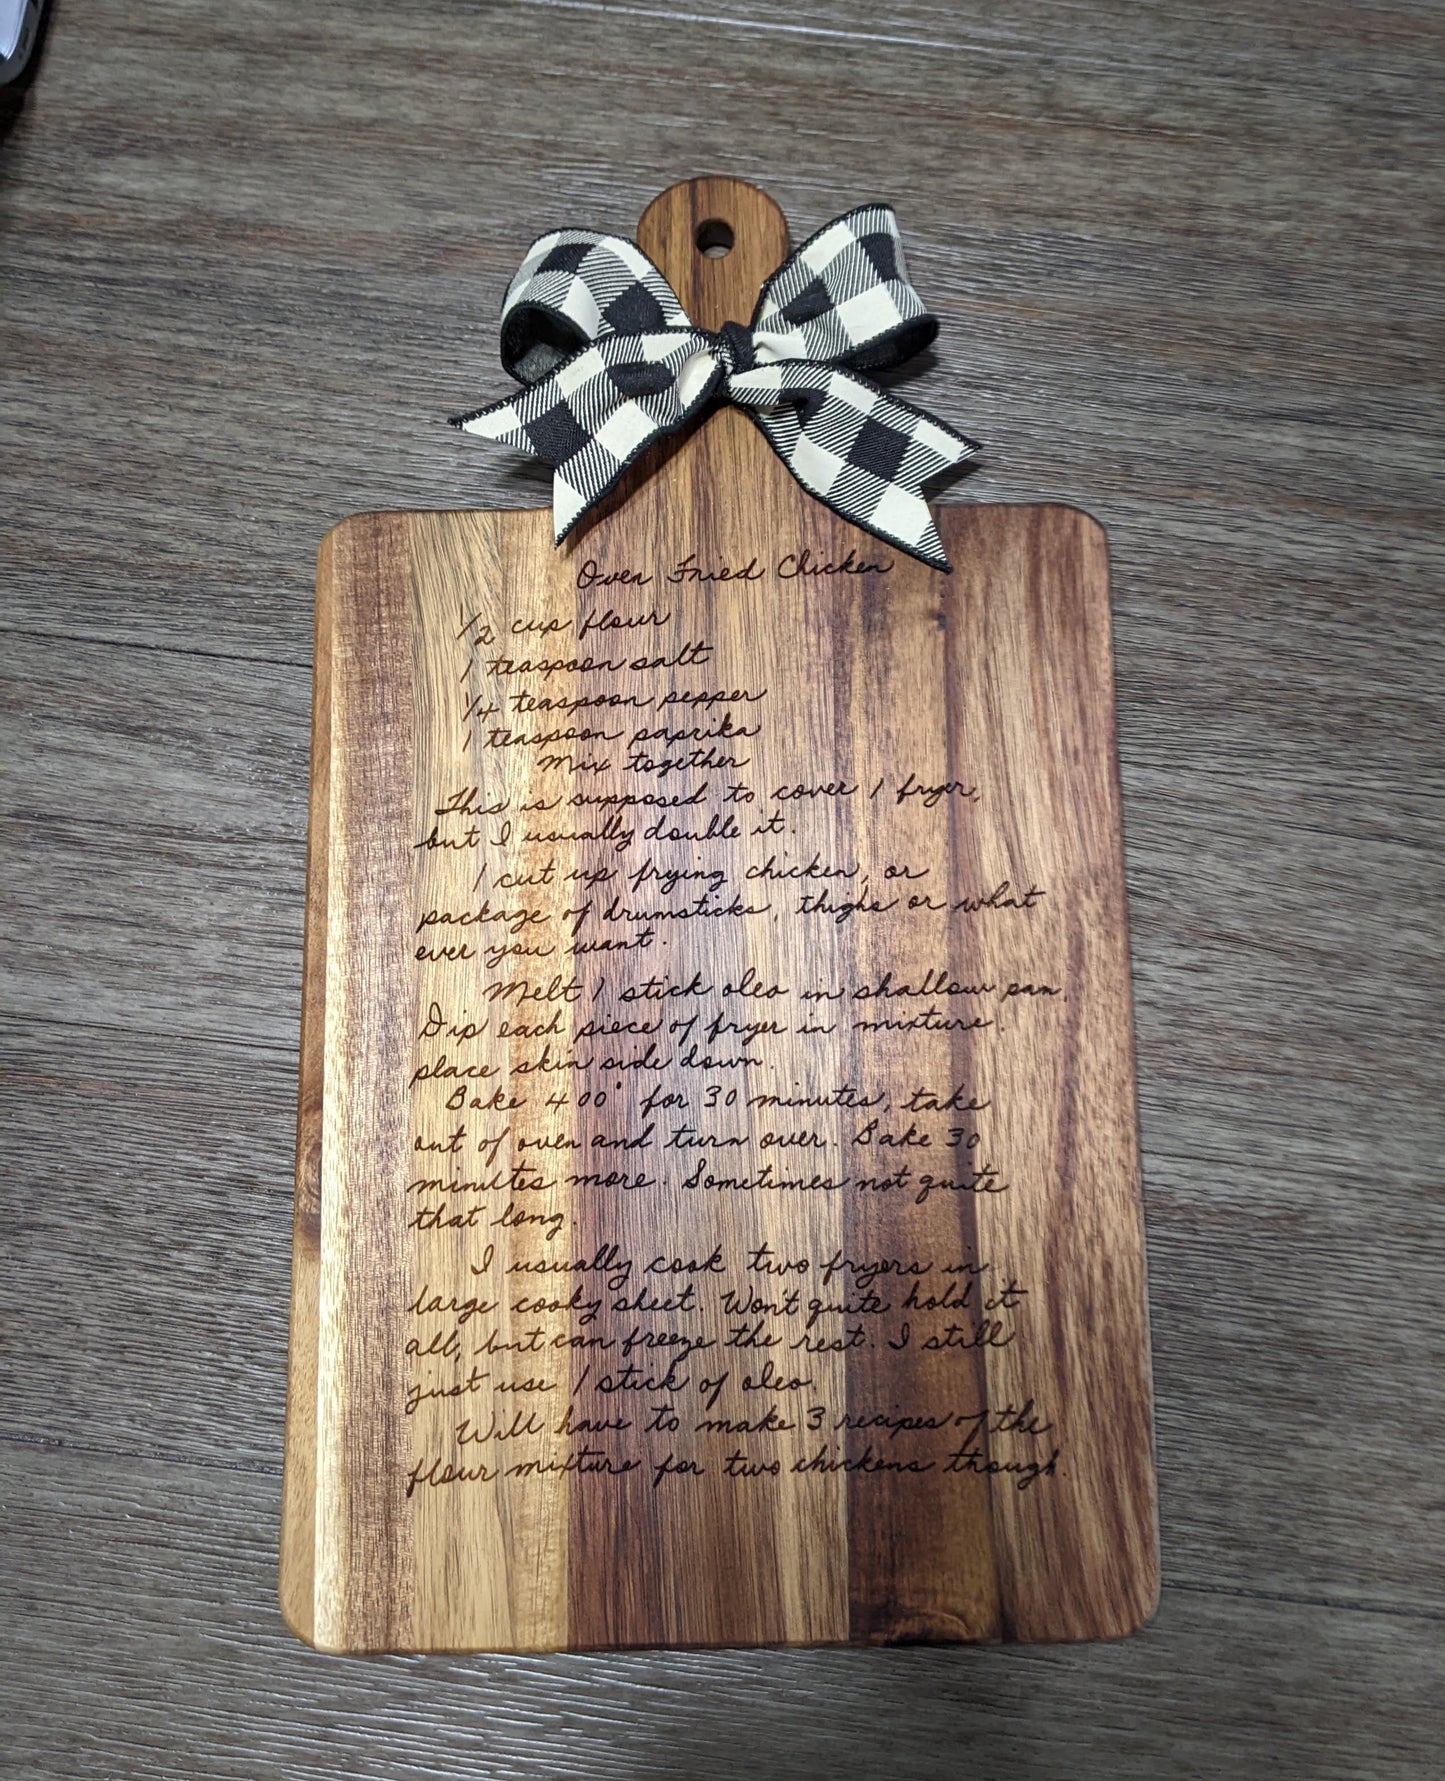 Oven Fried Chicken
1/2 cup flour
1 teaspoon salt
1/4 teaspoon pepper
1 teaspoon paprika
Mix together
This is supposed to cover 1 fryer,
but I usually double it.
1 cut up frying chicken, or
package of drumsticks, thighs or what
ever you want.
Melt 1 stick oleo in shallow pan.
Dip each piece of fryer in mixture.
place skin side down.
Bake 400° for 30 minutes, take
out of oven and turn over. Bake 30
minutes more. Sometimes not quite
that long.
I usually cook two fryers in
large cooky sheet. Won't quite hold it
all, but can freeze the rest. I still
just use 1 stick of oleo.
Will have to make 3 recipes of the
flour mixture for two chickens though.